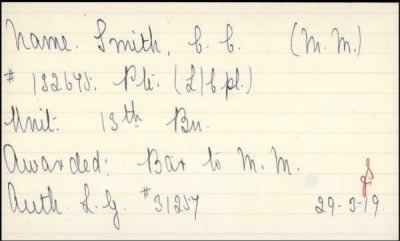 Name. Smith, C. C. (M.M.)
# 132645. Pte. (L/Cpl.)
Unit: 13th Bn.
Awarded: Bar to M.M.
Auth. L.G. #31257 29-3-19